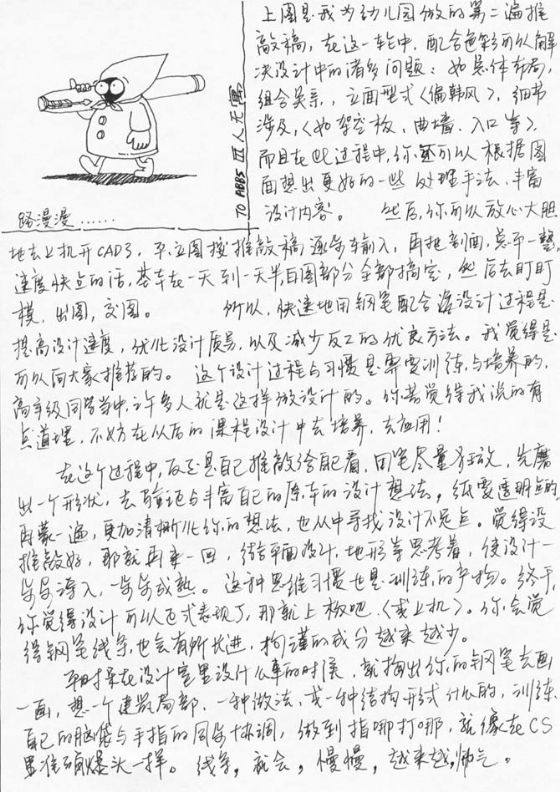 上图是我为幼儿园做的第二遍推
敲稿，在这一轮中，配合色彩可以解
决设计中的诸多问题：如总体布局，
组合关系，立面型式〈偏韩风〉，细节
涉及，〈如架空板、曲墙、入口等〉，
而且在此过程中，你还可以根据图
面想出更好的一些处理手法，丰富
设计内容。 然后，你可以放心大胆
路漫漫……
TO ABBS III 人无寄
地去上机开CAD了，平、立图按推敲稿逐步输入，再把剖面，总平一整，
速度快点的话，基本在一天到一天半，白图部分全部搞定，然后去盯盯
模，出图，交图。 所以，快速地用钢笔配合着设计过程是
提高设计速度，优化设计质量，以及减少返工的优良方法。我觉得是
可以向大家推荐的。 这个设计过程与习惯是需要训练与培养的，
高年级同学当中，许多人就是这样做设计的。你若觉得我说的有
点道理，不妨在从后的课程设计中去培养，去应用！
在这个过程中，反正是自己推敲给自己看，用笔尽量奔放，先磨
出一个形状，去验证与丰富自己的原本的设计想法，纸要透明点的
再蒙一遍，更加清晰化你的想法，也从中寻找设计不足点。觉得没
推敲好，那就再来一回，结合平面设计，地形等思考着，使设计一
步步深入，一步步成熟。这种思维习惯也是训练的产物。终于，
你觉得设计可以正式表现了，那就上板吧〈或上机〉。你会觉
得钢笔线条，也会有所长进，拘谨的成分越来越少。
平时呆在设计室里没什么事的时候，就掏出你的钢笔去画
一画，想一个建筑局部，一种做法，或一种结构形式什么的，训练
自己的脑袋与手指的同步协调，做到指哪打哪，就像在CS
里准确爆头一样。线条，就会，慢慢，越来越，帅气。